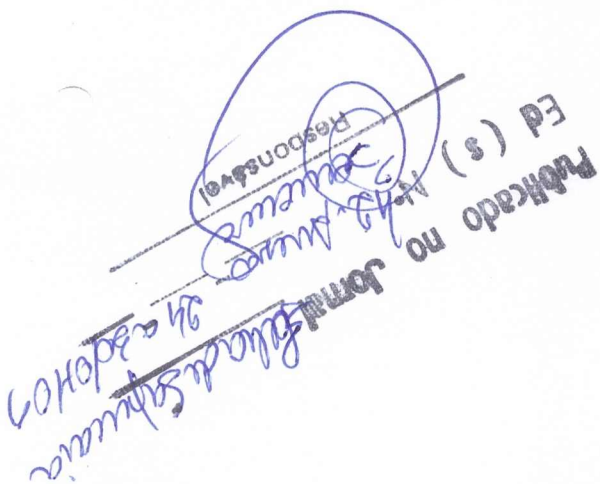 Publicado no Jornal Folha de Sapucaia
Ed (s) Nº 24 a 30/04/07
Responsável